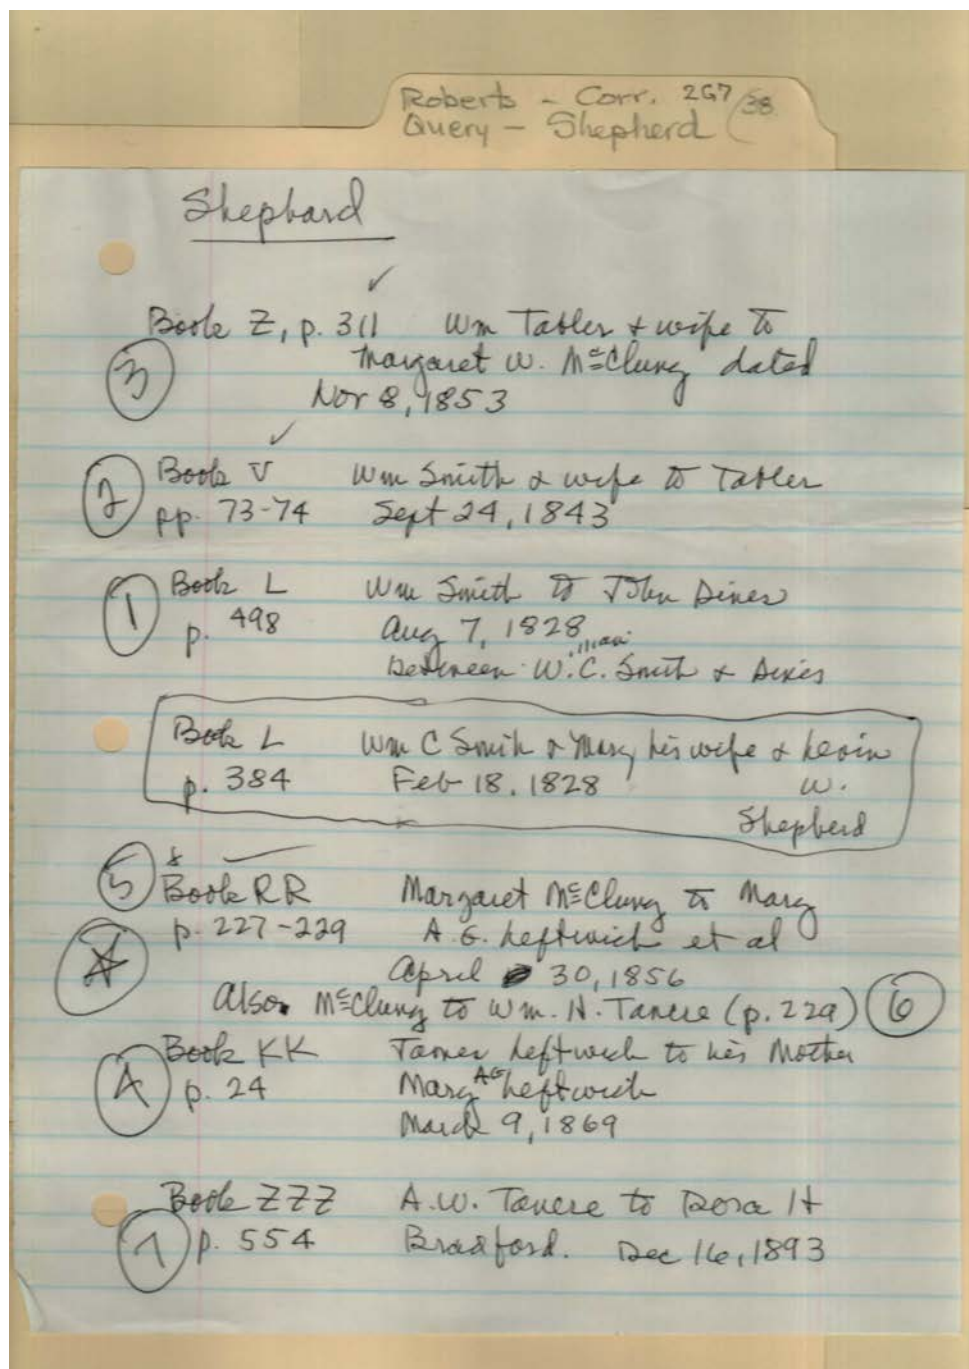 Roberts - Corr. 2G7/38
Query - Shepherd
Shephard
Book Z, p. 311 Wm Tabler + wife to
3 Margaret W. McClung dated
Nov 8, 1853
2 Book V Wm Smith & wife to Tabler
pp. 73-74 Sept 24, 1843
1 Book L Wm Smith to John
p. 498 Aug 7, 1828
Between W.C. Smith &
Book L Wm C Smith & Mary his wife & Levin
p. 384 Feb 18, 1828 W.
Shepherd
5 Book RR Margaret McClung to Mary
p. 227-229 A. G. Leftwich et al
April 30, 1856
Also McClung to Wm. H. Tancre (p. 229) 6
Book KK Leftwich to his Mother
p. 24 Mary AG Leftwich
March 9, 1869
Book ZZZ A.W. Tancre to Dora H
7 p. 554 Bradford. Dec 16, 1893